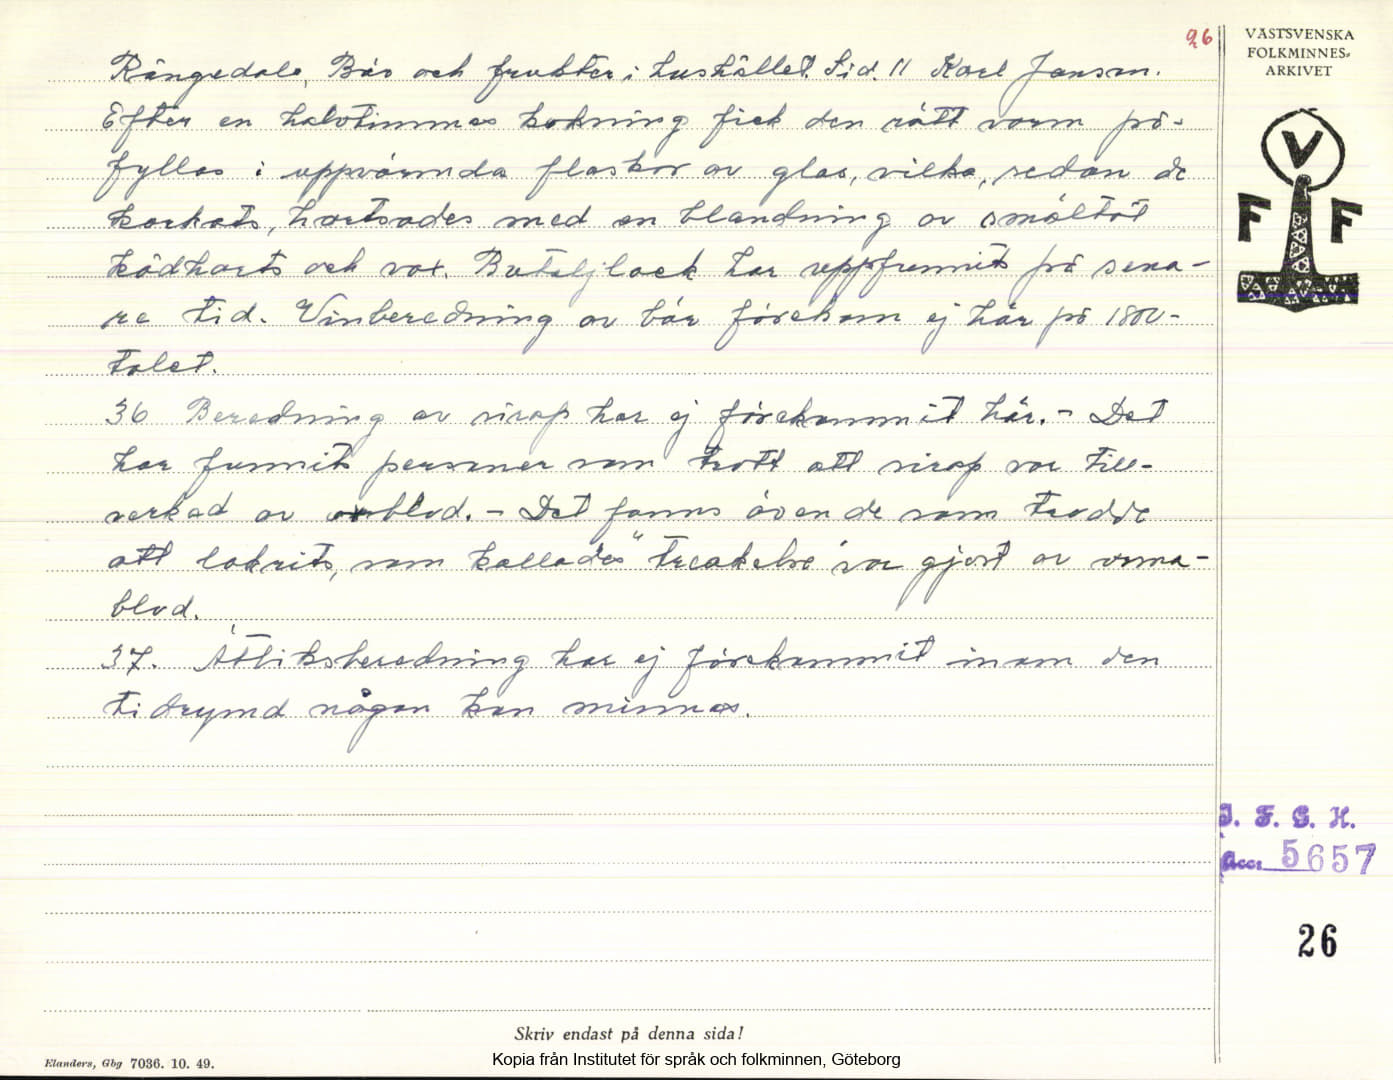 26
Rängedala, Bär och frukter i hushållet. Sid. 11 Karl Janson.
Efter en halvtimmes kokning fick den rätt varm på-
fyllas i uppvärmda flaskor av glas, vilka, sedan de
korkats, hartsades med en blandning av smältat
kådharts och vax. Buteljlack har uppfunnits på sena-
re tid. Vinberedning av bär förekom ej här på 1800-
talet.
36 Beredning av sirap har ej förekommit här. - Det
har funnits personer som trott att sirap var till-
verkad av oxblod. - Det fanns även de som trodde
att lakrits, som kallades "treakelse" var gjort av orma-
blod.
37. Ättiksberedning har ej förekommit inom den
tidrymd någon kan minnas.
VÄSTSVENSKA
FOLKMINNES-
ARKIVET
V
F F
I. F. G. H.
Acc: 5657
26
Skriv endast på denna sida!
Elanders, Gbg 7036. 10. 49.
Kopia från Institutet för språk och folkminnen, Göteborg